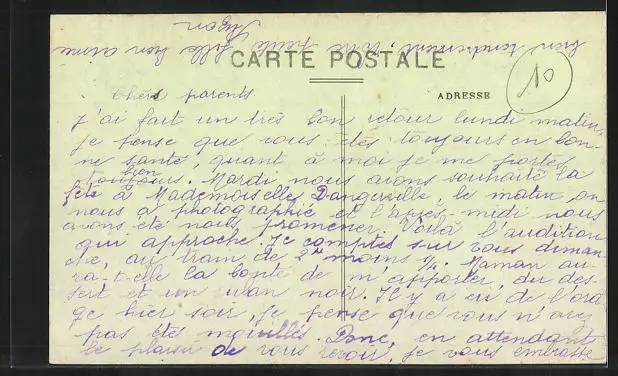 CARTE POSTALE
ADRESSE
10
Chers parents.
J'ai fait un très bon retour lundi matin,
je pense que vous êtes toujours en bon-
ne santé, quant à moi je me portes
toujours bien. Mardi nous avons souhaité la
fête à Mademoiselle Dangerville, le matin on
nous a photographié et l'après-midi nous
avons été nous promener. Voilà l'audition
qui approche. Je comptes sur vous diman-
che, au tram de 2h moins 1/4. Maman au-
ra-t-elle la bonté de m'apporter, du des-
sert et un ruban noir. Il y a eu de l'ora
ge hier soir, je pense que vous n'avez
pas été mouillés. Donc, en attendant
le plaisir de vous revoir, je vous embrasse
bien tendrement. Votre petite fille bien aimée